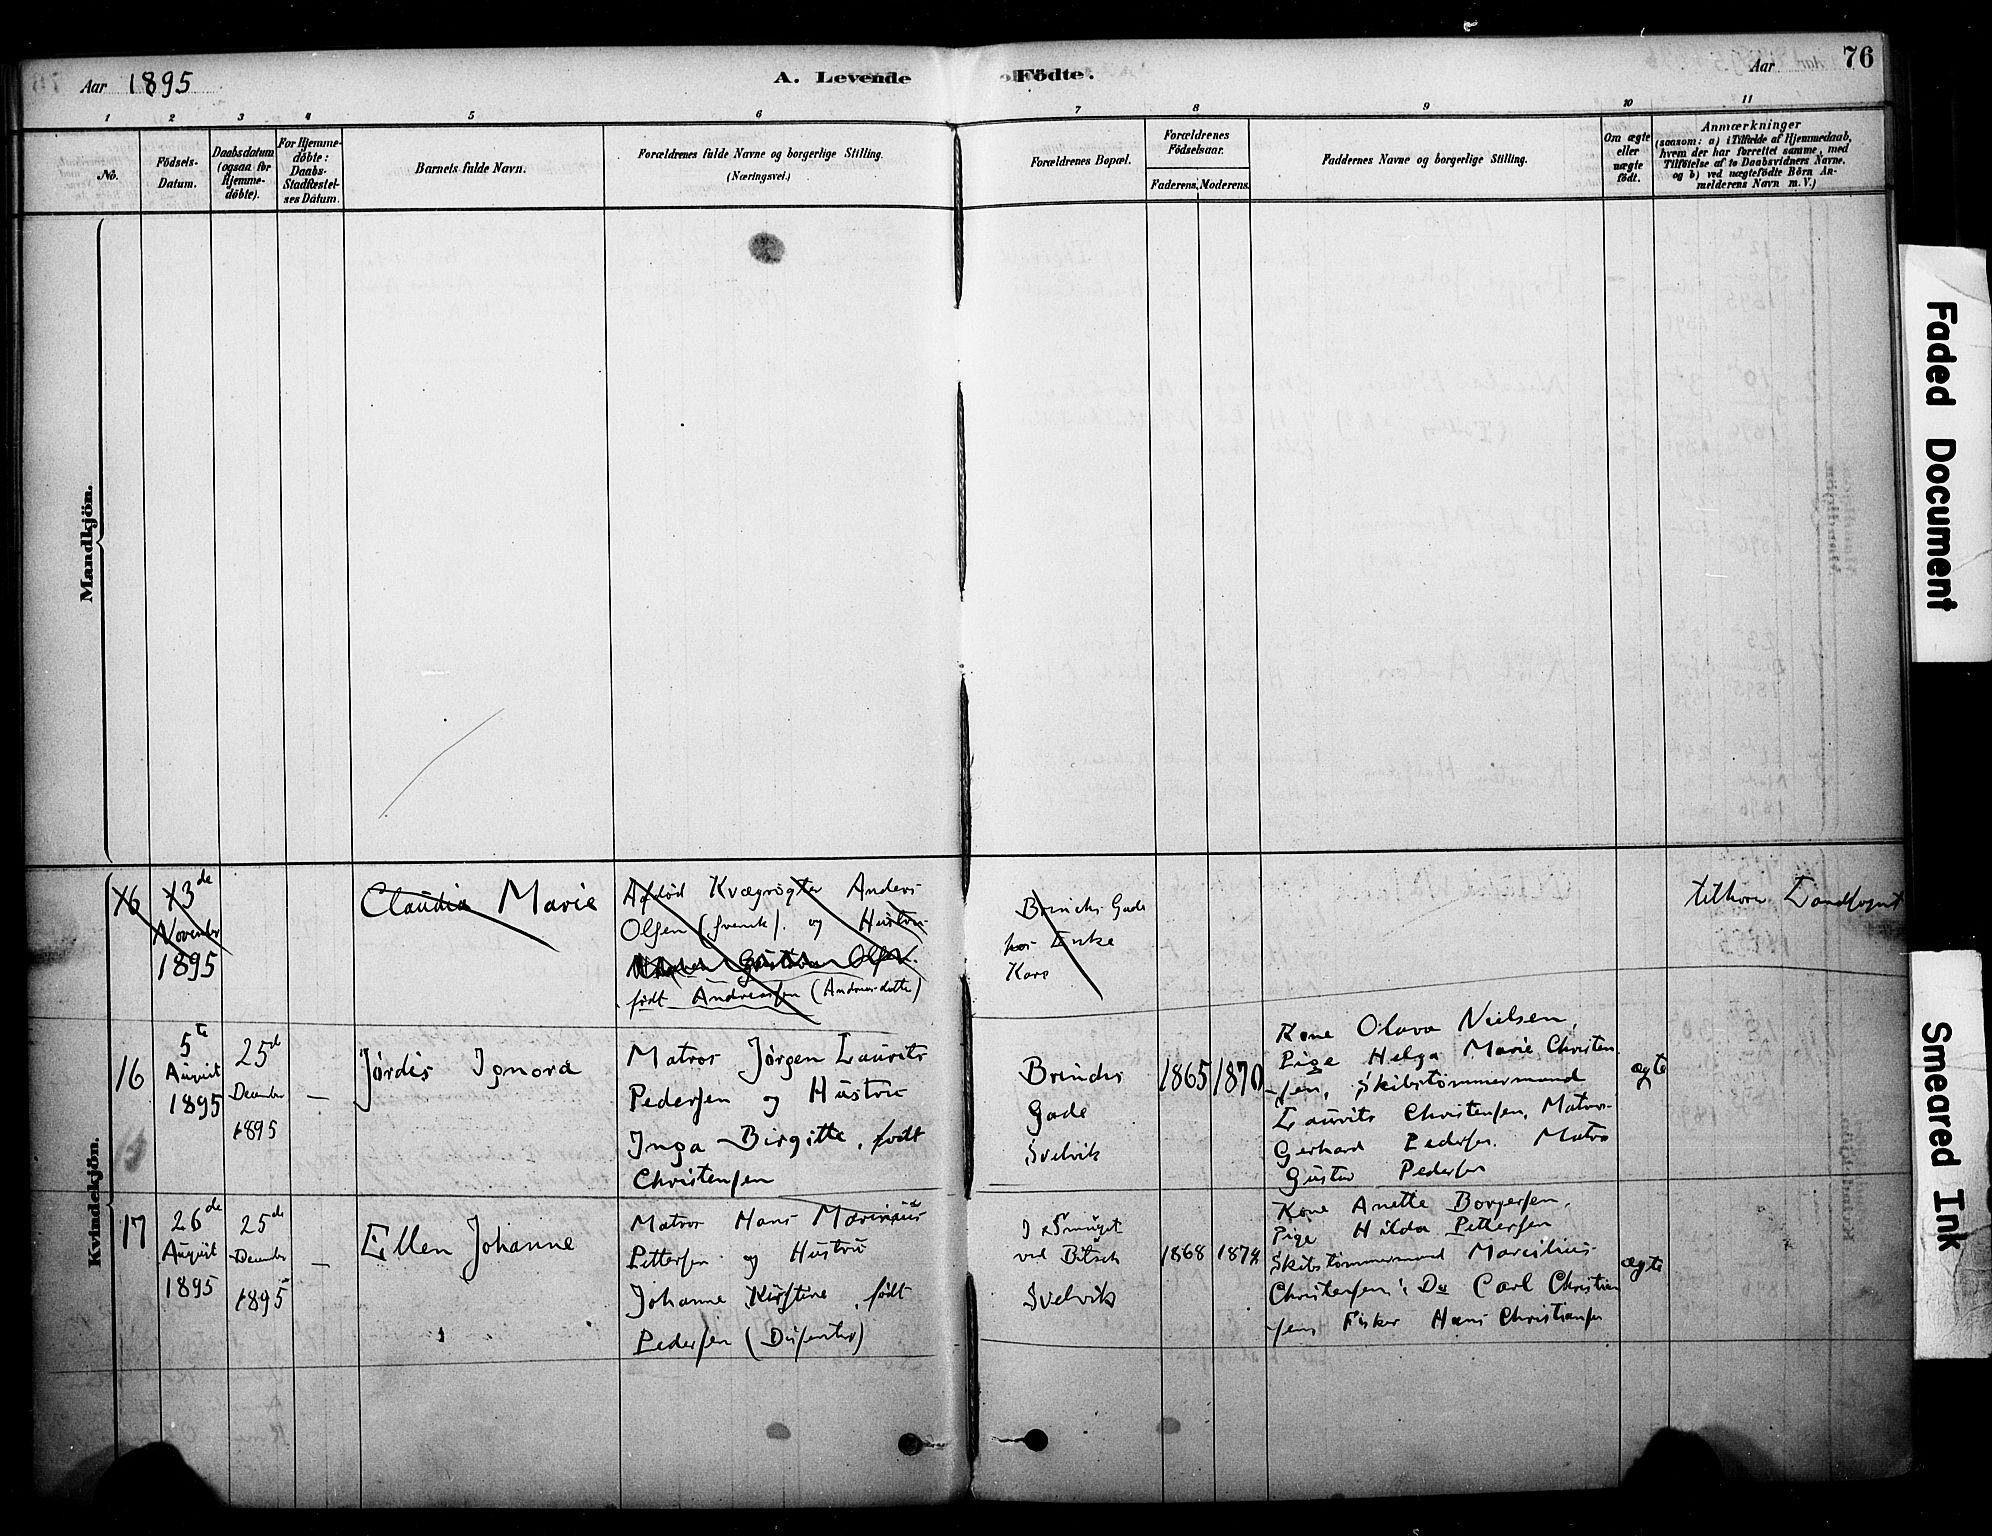 Aar 1895
A. Levende Födte.
Aar
76
1
2
3
4
5
6
7
8
9
10
11
No.
Födsels-
Datum.
Daabsdatum
(ogsaa for
Hjemme-
döbte).
For Hjemme-
döbte:
Daabs-
Stadfæstel-
ses Datum.
Barnets fulde Navn.
Forældrenes fulde Navne og borgerlige Stilling.
(Næringsvei.)
Forældrenes Bopæl.
Forældrenes
Födselsaar.
Faderens.
Moderens.
Faddernes Navne og borgerlige Stilling.
Om ægte
eller
uægte
födt.
Anmærkninger
(saasom: a) i Tilfælde af Hjemmedaab,
hvem der har forrettet samme, med
Tilföielse af to Daabsvidners Navne,
og b) ved uægtefödte Börn An-
melderens Navn m. V.)
Mandkjön.
Kvindekjön.
16
13de
November
1895
Claudia Marie
Afdød Kvægrøgter Anders
Olsen (svensk). og Hustru
født Andreassen (Andreasdatter)
Brinchs Gade
hos Enke
tilhører Landsognet
16
5te
August
1895
25d
December
1895
—
Jørdis Ignora
Matros Jørgen Laurits
Pedersen og Hustru
Inga Birgitte, født
Christensen
Brinchs
Gade
Svelvik
1865
1870
Kone Olava Nielsen,
Pige Helga Marie Christen-
sen, Skibstømmermand
Laurits Christensen, Matros
Gerhard Pedersen. Matros
Gustav Pedersen
ægte
17
26de
August
1895
25de
December
1895
—
Ellen Johanne
Matros Hans Marinius
Pettersen og Hustru
Johanne Kirstine, født
Pedersen (Dissenter)
I Smuget
ved Bitsch
Svelvik
1868
1874
Kone Anette Borgersen,
Pige Hilda Pettersen
Skibstømmermand Marcilius
Christensen, Do Carl Christian
sen, Fisker Hans Christiansen
ægte
Faded Document
Smeared Ink